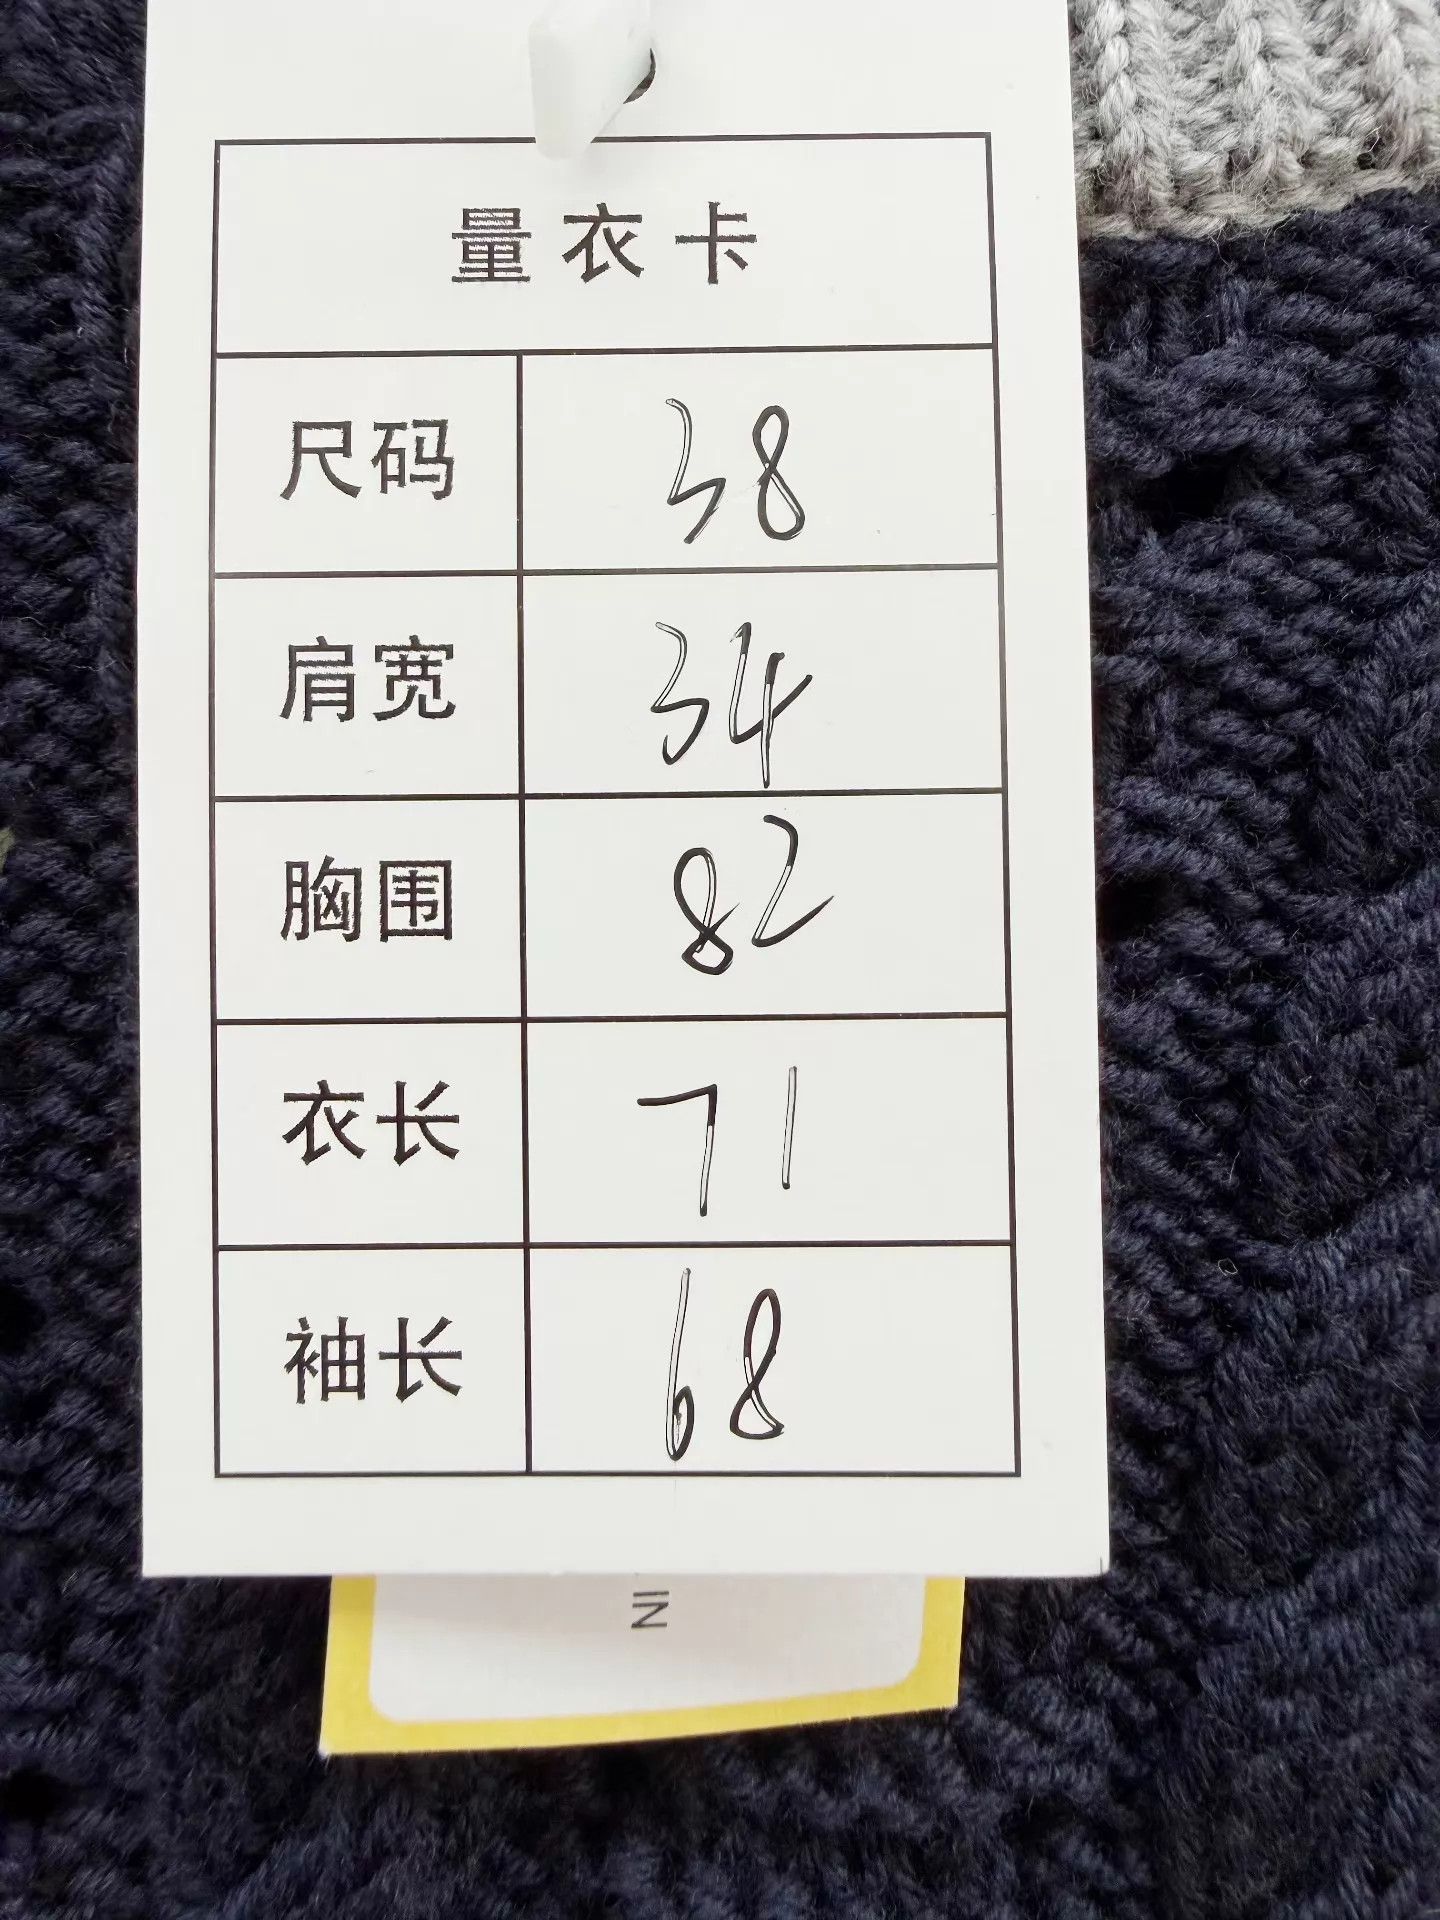 量衣卡
尺码 38
肩宽 34
胸围 82
衣长 71
袖长 68
NI